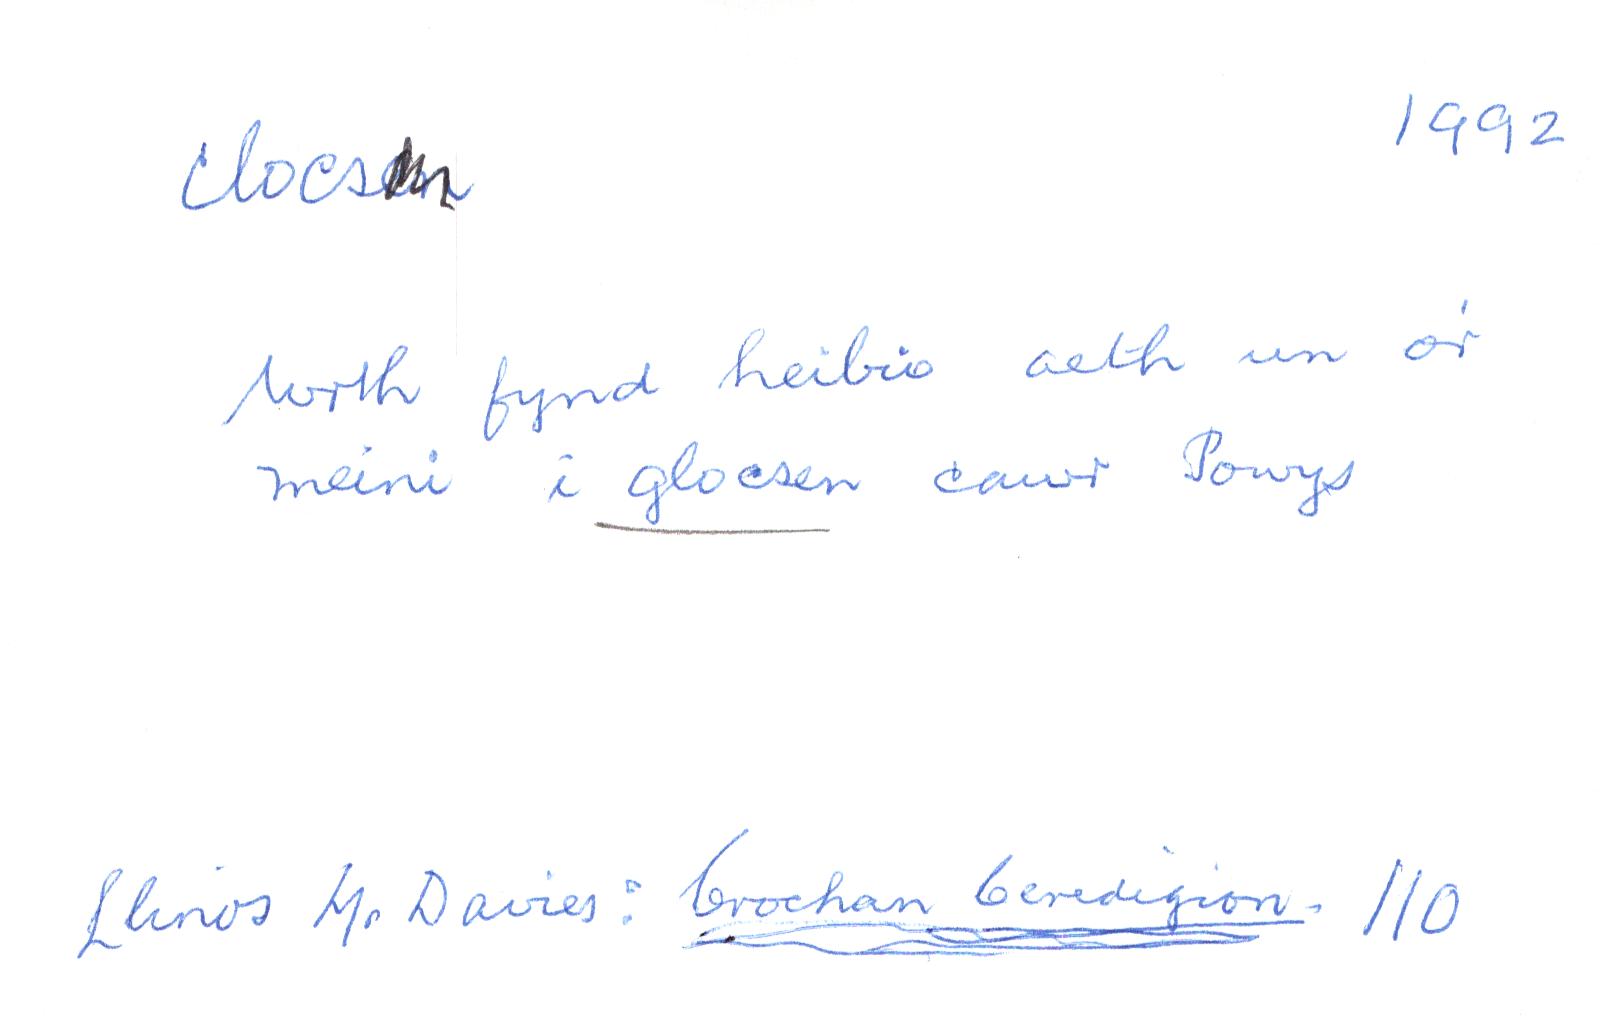 clocsen
1992
Wrth fynd heibio aeth un o'r
meini i glocsen cawr Powys
Llinos M. Davies: Crochan Ceredigion. 110